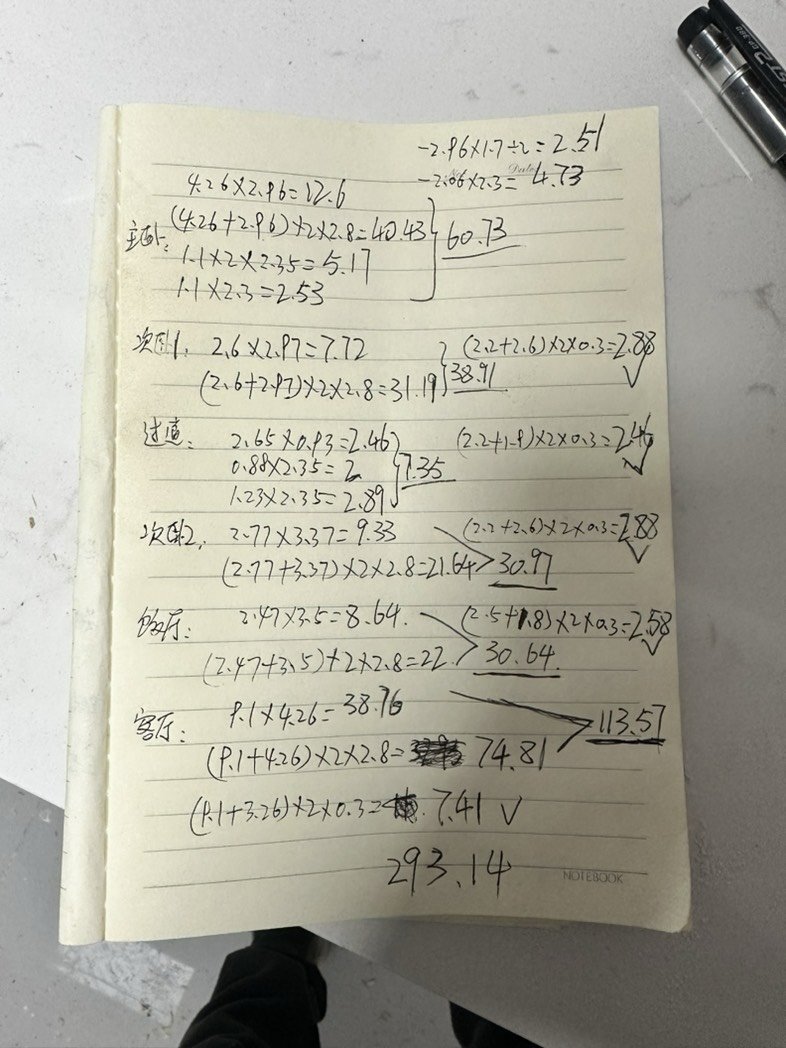 -2.96×1.7÷2=2.51
Date
-2.06×2.3=4.73
4.26×2.96=12.6
主卧: (4.26+2.96)×2×2.8=40.43 60.73
1.1×2×2.35=5.17
1.1×2.3=2.53
次卧1: 2.6×2.97=7.72 (2.2+2.6)×2×0.3=2.88 ✓
(2.6+2.97)×2×2.8=31.19 38.91
过道: 2.65×0.93=2.46 (2.2+1.9)×2×0.3=2.46 ✓
0.88×2.35=2 7.35
1.23×2.35=2.89
次卧2: 2.77×3.37=9.33 (2.2+2.6)×2×0.3=2.88 ✓
(2.77+3.37)×2×2.8=21.64 30.97
饭厅: 2.47×3.5=8.64 (2.5+1.8)×2×0.3=2.58 ✓
(2.47+3.5)×2×2.8=22 30.64
客厅: 9.1×4.26=38.76 113.57
(9.1+4.26)×2×2.8= 74.81
(9.1+3.26)×2×0.3= 7.41 ✓
293.14
NOTEBOOK